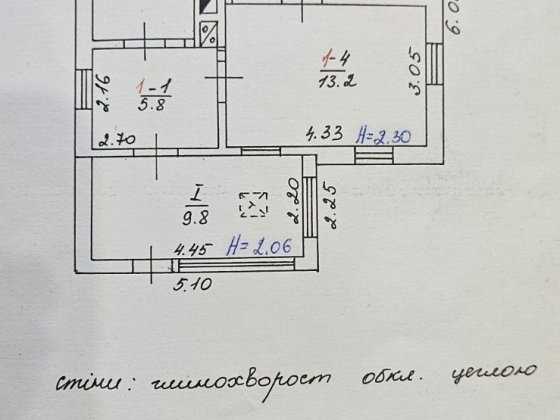 6.0
1-4
13.2
3.05
1-1
5.8
2.16
2.70
4.33
H=2.30
I
9.8
2.20
2.25
4.45
H=2.06
5.10
стіни: глинохворост обкл. цеглою